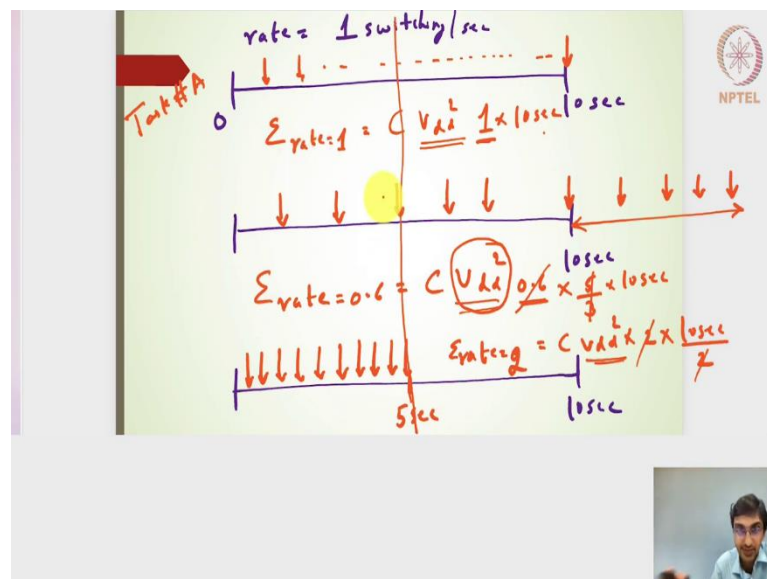 rate = 1 switching/sec
Task#A
NPTEL
0
10sec
Σrate=1 = C Vdd² 1 × 10sec
10sec
Σrate=0.6 = C Vdd² 0.6 × × 10sec
Σrate=2 = C Vdd² × 2 × 10sec/2
5sec
10sec